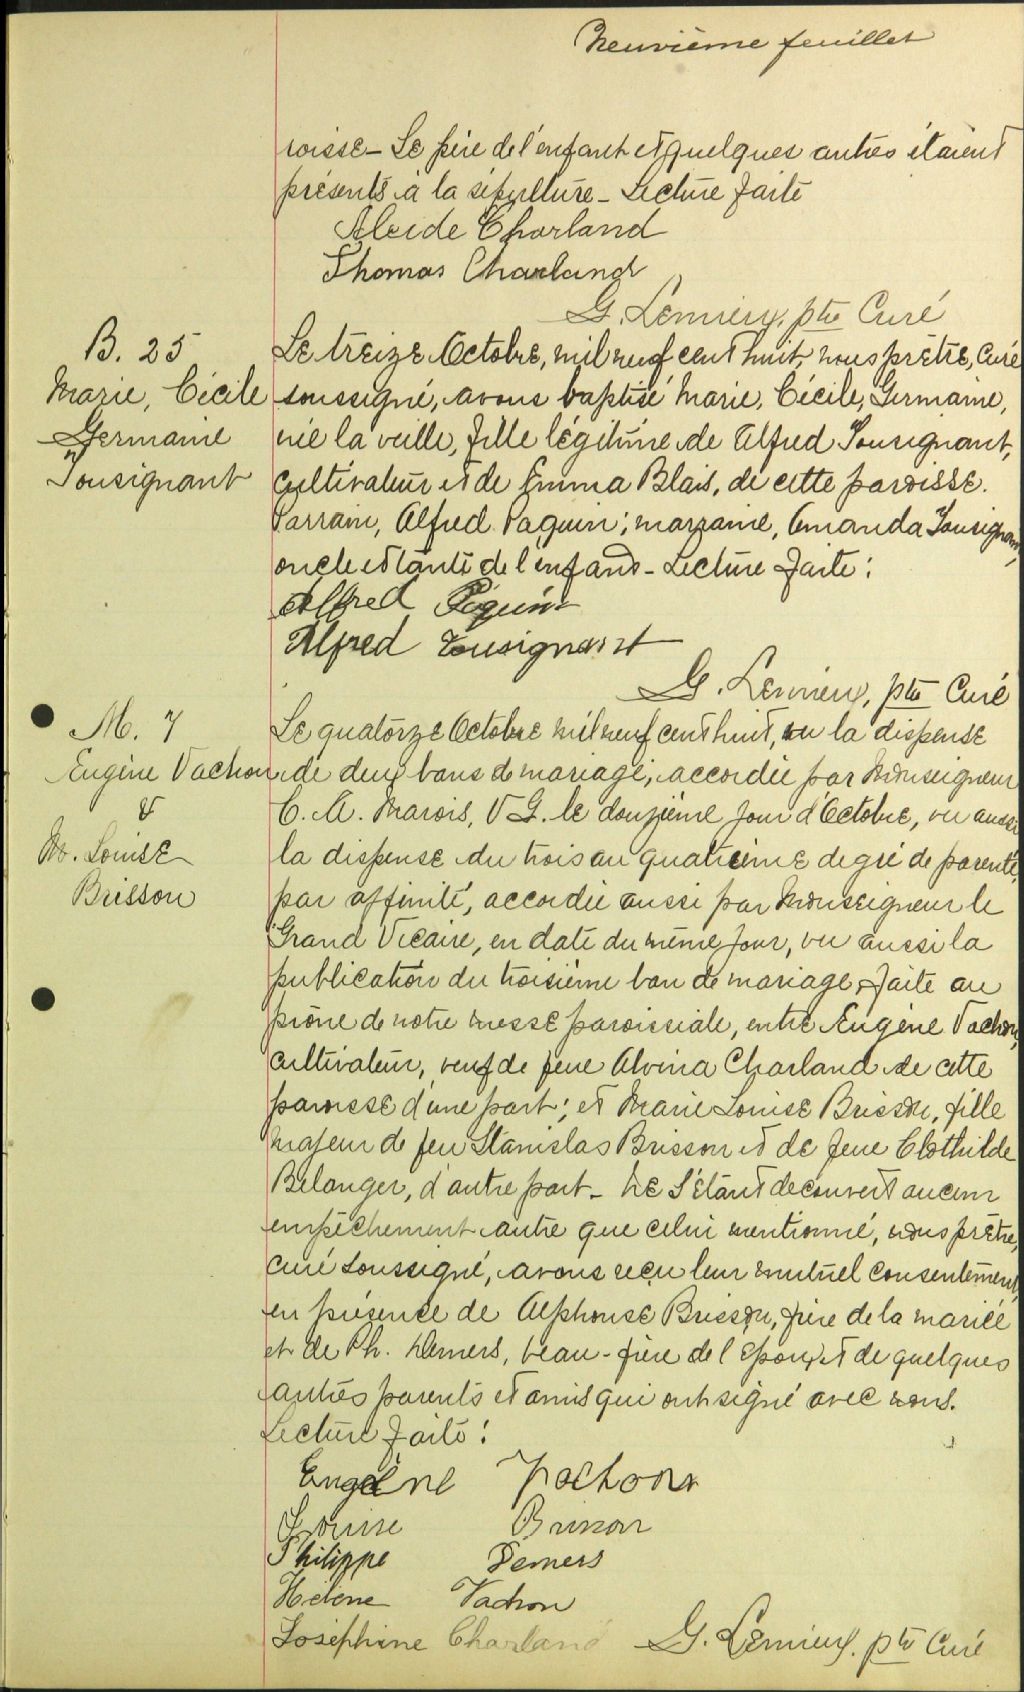 Neuvième feuillet
roisse - Le père de l'enfant et quelques autres étaient
présents à la sépulture - Lecture faite
Alcide Charland
Thomas Charland
G. Lemieux, ptre Curé
B. 25
Marie, Cécile
Germaine
Tousignant
Le treize Octobre, mil neuf cent huit, nous prêtre, curé
soussigné, avons baptisé Marie, Cécile, Germaine,
née la veille, fille légitime de Alfred Tousignant,
cultivateur et de Emma Blais, de cette paroisse.
Parrain, Alfred Paquin; marraine, Amanda Tousignant,
oncle et tante de l'enfant - Lecture faite:
Alfred Péquin
Alfred Tousignant
G. Lemieux, ptre Curé
M. 7
Eugène Vachon
&
M. Louise
Brisson
Le quatorze Octobre mil neuf cent huit, vu la dispense
de deux bans de mariage, accordée par Monseigneur
C. A. Marois, V. G. le douzième jour d'Octobre, vu aussi
la dispense du trois au quatrième degré de parenté,
par affinité, accordée aussi par Monseigneur le
Grand Vicaire, en date du même jour, vu aussi la
publication du troisième ban de mariage faite au
prône de notre messe paroissiale, entre Eugène Vachon,
cultivateur, veuf de feue Alvina Charland de cette
paroisse d'une part; et Marie Louise Brisson, fille
majeur de feu Stanislas Brisson et de feue Clothilde
Belanger, d'autre part - Ne s'étant découvert aucun
empêchement autre que celui mentionné, nous prêtre,
curé soussigné, avons reçu leur mutuel consentement,
en présence de Alphonse Brisson, frère de la mariée
et de Ph. Demers, beau-frère de l'époux et de quelques
autres parents et amis qui ont signé avec nous.
Lecture faite:
Eugène Vachon
Louise Brisson
Philippe Demers
Hélène Vachon
Joséphine Charland
G. Lemieux, ptre Curé